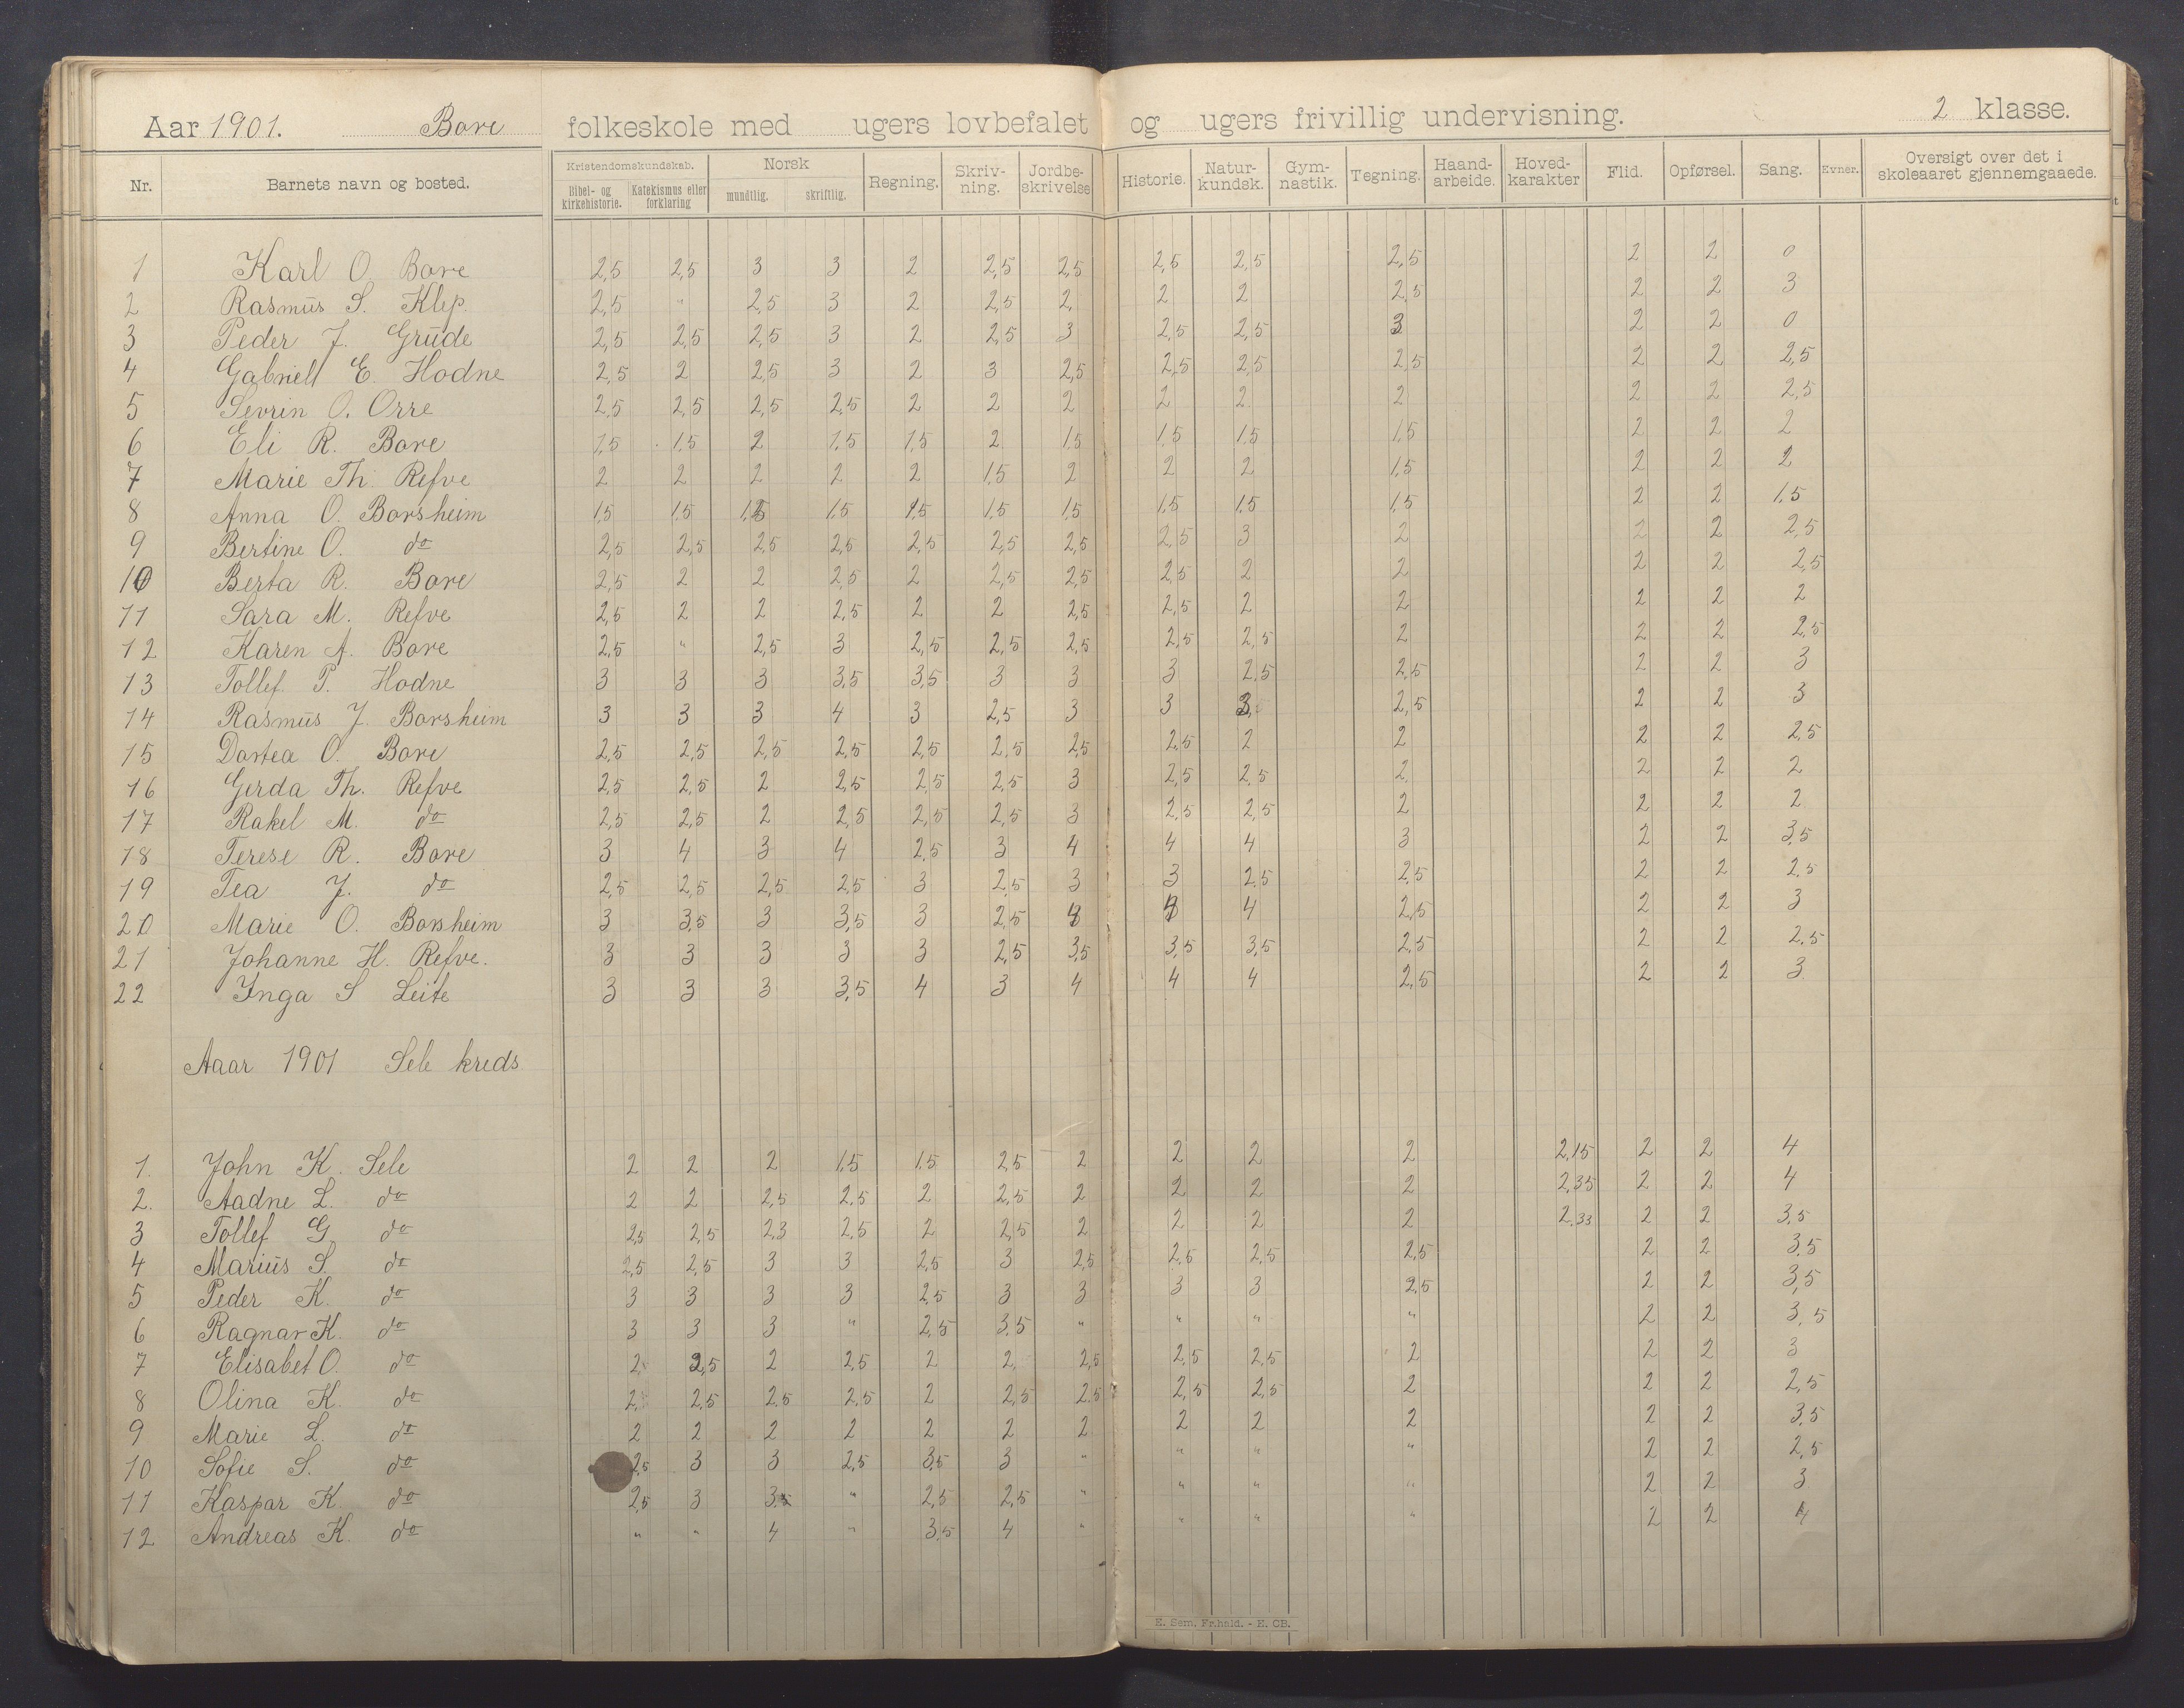 Aar 1901. Bore folkeskole med ugers lovbefalet og ugers frivillig undervisning. 2 klasse.
Nr. Barnets navn og bosted. Kristendomskundskab. Bibel- og kirkehistorie. Katekismus eller forklaring Norsk mundtlig. skriftlig. Regning. Skriv-ning. Jordbe-skrivelse Historie. Natur-kundsk. Gym-nastik. Tegning. Haand-arbeide. Hoved-karakter Flid. Opførsel. Sang. Evner. Oversigt over det i skoleaaret gjennemgaaede.
1 Karl O. Bore 2,5 2,5 3 3 2 2,5 2,5 2,5 2,5 2,5 2 2 0
2 Rasmus S. Klep. 2,5 " 2,5 3 2 2,5 2, 2 2 2,5 2 2 3
3 Peder J. Grude 2,5 2,5 2,5 3 2 2,5 3 2,5 2,5 3 2 2 0
4 Gabriell E. Hodne 2,5 2 2,5 3 2 3 2,5 2,5 2,5 2,5 2 2 2,5
5 Sevrin O. Orre 2,5 2,5 2,5 2,5 2 2 2 2 2 2 2 2 2,5
6 Eli R. Bore 1,5 1,5 2 1,5 1,5 2 1,5 1,5 1,5 1,5 2 2 2
7 Marie Th. Refve 2 2 2 2 2 1,5 2 2 2 1,5 2 2 2
8 Anna O. Borsheim 1,5 1,5 1,5 1,5 1,5 1,5 1,5 1,5 1,5 1,5 2 2 1,5
9 Bertine O. do 2,5 2,5 2,5 2,5 2,5 2,5 2,5 2,5 3 2 2 2 2,5
10 Berta R. Bore 2,5 2 2 2,5 2 2,5 2,5 2,5 2 2 2 2 2,5
11 Sara M. Refve 2,5 2 2 2,5 2 2 2,5 2,5 2 2 2 2 2
12 Karen A. Bore 2,5 " 2,5 3 2,5 2,5 2,5 2,5 2,5 2 2 2 2,5
13 Tollef P. Hodne 3 3 3 3,5 3,5 3 3 3 2,5 2,5 2 2 3
14 Rasmus J. Borsheim 3 3 3 4 3 2,5 3 3 3 2,5 2 2 3
15 Dortea O. Bore 2,5 2,5 2,5 2,5 2,5 2,5 2,5 2,5 2 2 2 2 2,5
16 Gerda Th. Refve 2,5 2,5 2 2,5 2,5 2,5 3 2,5 2,5 2 2 2 2
17 Rakel M. do 2,5 2,5 2 2,5 2,5 2,5 3 2,5 2,5 2 2 2 2
18 Terese R. Bore 3 4 3 4 2,5 3 4 4 4 3 2 2 3,5
19 Tea J. do 2,5 2,5 2,5 2,5 3 2,5 3 3 2,5 2,5 2 2 2,5
20 Marie O. Borsheim 3 3,5 3 3,5 3 2,5 4 2,5 2 2 3
21 Johanne H. Refve. 3 3 3 3 3 2,5 3,5 3,5 3,5 2,5 2 2 2,5
22 Inga S Leite 3 3 3 3,5 4 3 4 4 4 2,5 2 2 3
Aaar 1901 Sele kreds
1. John K. Sele 2 2 2 1,5 1,5 2,5 2 2 2 2 2,15 2 2 4
2. Aadne L. do 2 2 2,5 2,5 2 2,5 2 2 2 2 2,35 2 2 4
3 Tollef G do 2,5 2,5 2,3 2,5 2 2,5 2 2 2 2 2,33 2 2 3,5
4 Marius S. do 2,5 2,5 3 3 2,5 3 2,5 2,5 2,5 2,5 2 2 3,5
5 Peder K. do 3 3 3 3 2,5 3 3 3 3 2,5 2 2 3,5
6 Ragnar K. do 3 3 3 " 2,5 3,5 " " " " 2 2 3,5
7 Elisabet O. do 2 2,5 2 2,5 2 2 2,5 2,5 2,5 2 2 2 3
8 Olina K. do 2, 2,5 2,5 2,5 2 2,5 2,5 2,5 2,5 2 2 2 2,5
9 Marie L. do 2 2 2 2 2 2 2 2 2 2 2 2 3,5
10 Sofie S. do 2,5 3 3 2,5 3,5 3 " " " " 2 2 2,5
11 Kaspar K. do 2,5 3 3,5 " 2,5 2,5 " " " " 2 2 3
12 Andreas K. do " " 4 " 3,5 4 " " " " 2 2 4
E. Sem. Fr.hald. - E. CB.